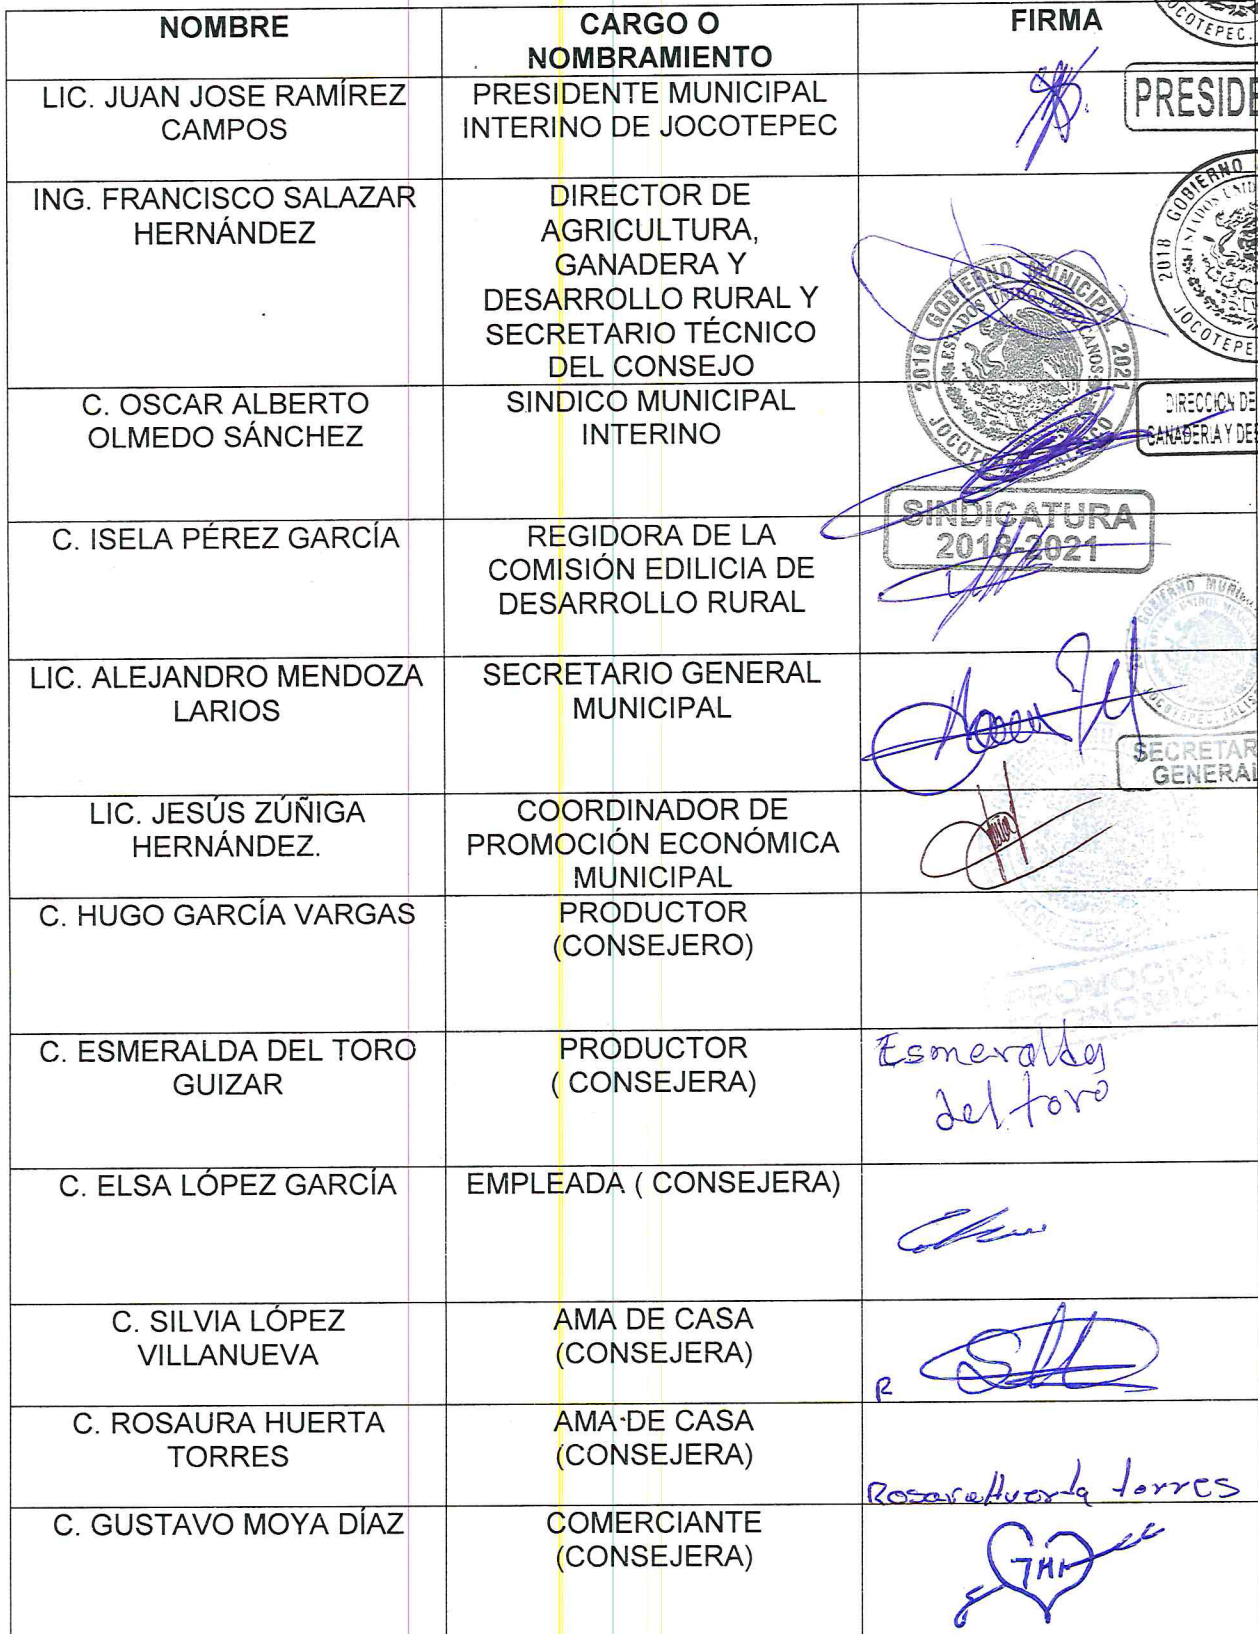 NOMBRE
CARGO O
NOMBRAMIENTO
FIRMA
COTEPEC.
LIC. JUAN JOSE RAMÍREZ
CAMPOS
PRESIDENTE MUNICIPAL
INTERINO DE JOCOTEPEC
PRESIDE
ING. FRANCISCO SALAZAR
HERNÁNDEZ
DIRECTOR DE
AGRICULTURA,
GANADERA Y
DESARROLLO RURAL Y
SECRETARIO TÉCNICO
DEL CONSEJO
2018 GOBIERNO MUNICIPAL 2021
ESTADOS UNIDOS MEXICANOS
2018 GOBIERNO
JOCOTEPE
C. OSCAR ALBERTO
OLMEDO SÁNCHEZ
SINDICO MUNICIPAL
INTERINO
DIRECCION DE
GANADERIA Y DE
SINDICATURA
2018-2021
C. ISELA PÉREZ GARCÍA
REGIDORA DE LA
COMISIÓN EDILICIA DE
DESARROLLO RURAL
LIC. ALEJANDRO MENDOZA
LARIOS
SECRETARIO GENERAL
MUNICIPAL
SECRETAR
GENERAL
LIC. JESÚS ZÚÑIGA
HERNÁNDEZ.
COORDINADOR DE
PROMOCIÓN ECONÓMICA
MUNICIPAL
C. HUGO GARCÍA VARGAS
PRODUCTOR
(CONSEJERO)
C. ESMERALDA DEL TORO
GUIZAR
PRODUCTOR
( CONSEJERA)
Esmeralda
del toro
C. ELSA LÓPEZ GARCÍA
EMPLEADA ( CONSEJERA)
C. SILVIA LÓPEZ
VILLANUEVA
AMA DE CASA
(CONSEJERA)
C. ROSAURA HUERTA
TORRES
AMA DE CASA
(CONSEJERA)
Rosara Huerta torres
C. GUSTAVO MOYA DÍAZ
COMERCIANTE
(CONSEJERA)